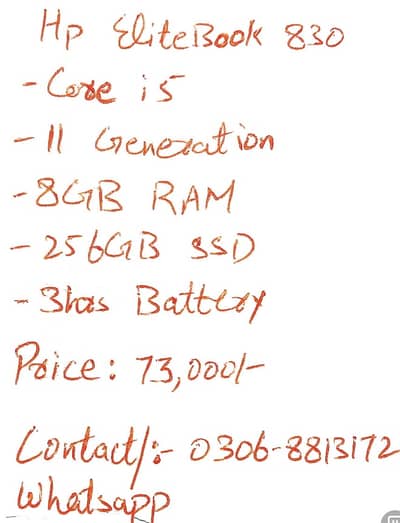 Hp EliteBook 830
- Core i5
- 11 Generation
- 8GB RAM
- 256GB SSD
- 3hrs Battery
Price: 73,000/-
Contact/:- 0306-8813172
Whatsapp